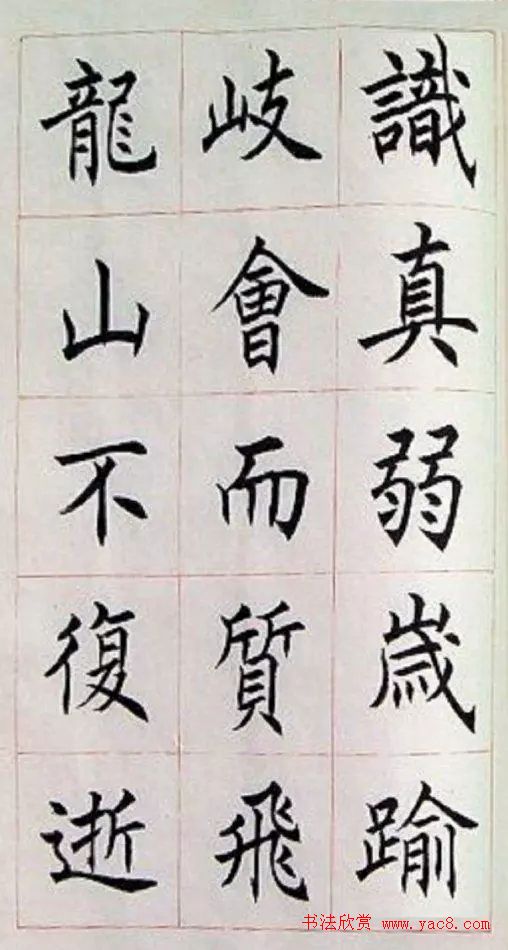 識真弱歲踰
岐會而質飛
龍山不復逝
书法欣赏 www.yac8.com